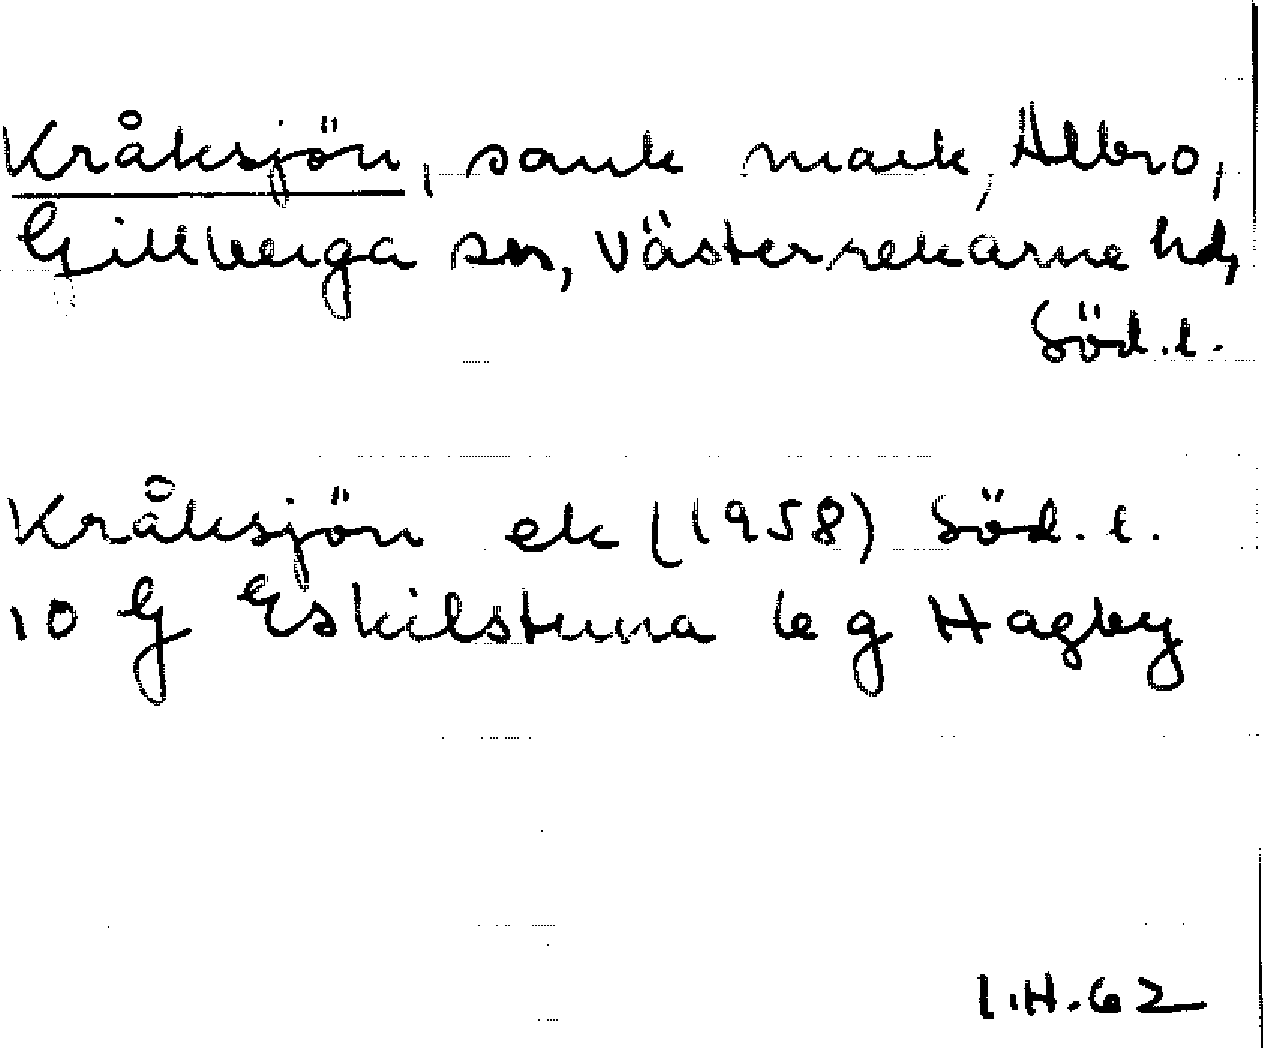 Kråksjön, sank mark, Ålbro,
Gillberga sn, Västerrekarne hd,
Söd.l.
Kråksjön ek (1958) Söd.l.
10 G Eskilstuna 6 g Hagby
I.H.62